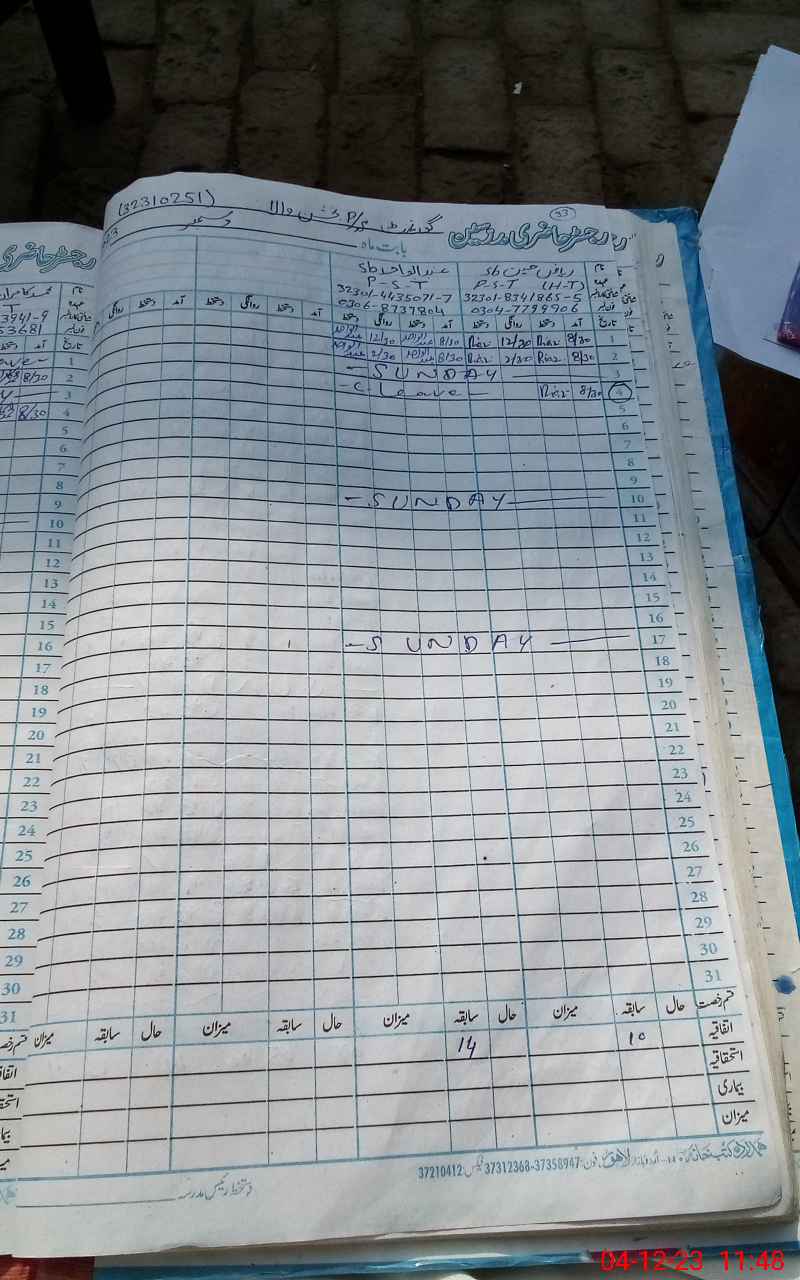 (32310251)
33
رجسٹر حاضری مدرسین
بابت ماہ دسمبر
نام ریاض حسین sb عبدالواحد sb
عہدہ P-S-T (H-T) P-S-T
32301-8341865-5 32301-4435071-7
0304-7799906 0306-8737804
تاریخ آمد دستخط روانگی دستخط آمد دستخط روانگی دستخط آمد دستخط روانگی دستخط آمد دستخط
1 8/30 Riaz 12/30 Riaz 8/30 عبدالواحد 12/30 عبدالواحد
2 8/30 Riaz 2/30 Riaz 8/30 عبدالواحد 2/30 عبدالواحد
3 - SUNDAY
4 8/30 Riaz C-Leave -
5
6
7
8
9
10 - SUNDAY -
11
12
13
14
15
16
17 - SUNDAY -
18
19
20
21
22
23
24
25
26
27
28
29
30
31
قسم رخصت حال سابقہ میزان حال سابقہ میزان حال سابقہ میزان حال سابقہ میزان
اتفاقیہ 10 14
استحقاقیہ
بیماری
میزان
دستخط رئیس مدرسہ
ہمدرد کتب خانہ اردو بازار لاہور فون: 37358947-37312368 فیکس: 37210412
3941-9
53681
1
2 8/30
3
4 8/30
5
6
7
8
9
10
11
12
13
14
15
16
17
18
19
20
21
22
23
24
25
26
27
28
29
30
31
04-12-23 11:48